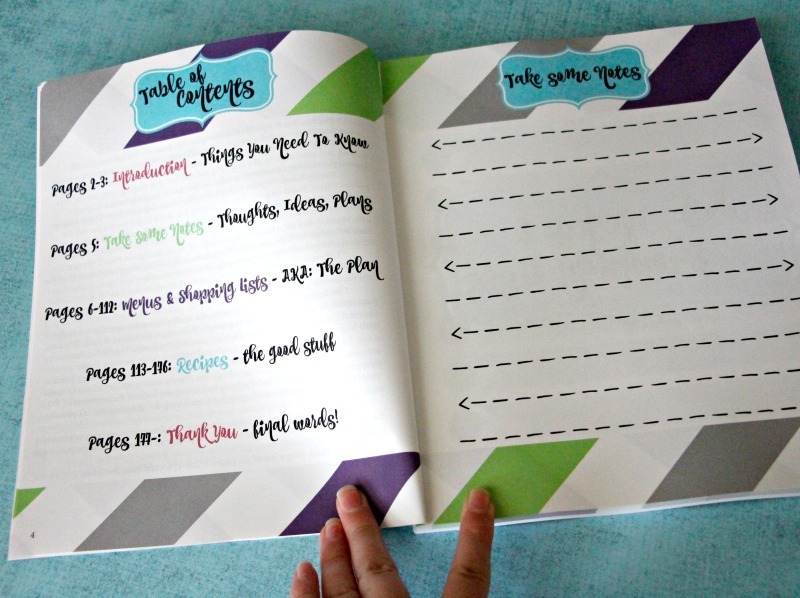 Table of
Contents
Pages 2-3: Introduction - Things You Need To Know
Pages 5: Take Some Notes - Thoughts, Ideas, Plans
Pages 6-112: Menus & Shopping Lists - AKA: The Plan
Pages 113-176: Recipes - the good stuff
Pages 177-: Thank You - final words!
4
Take Some Notes